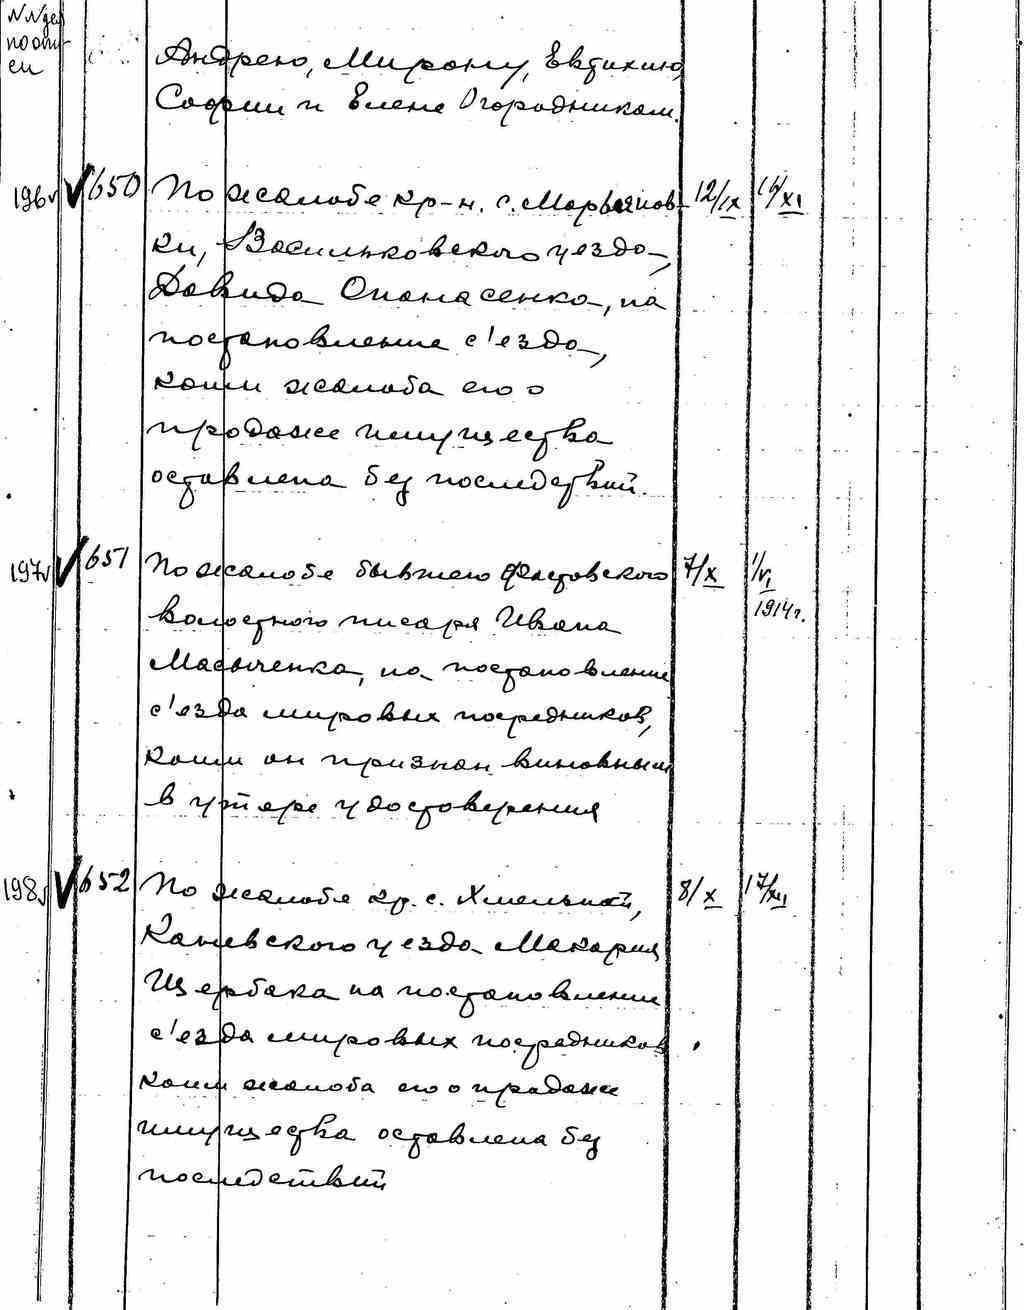 NN дел
по опи-
си
Андрею, Мирону, Евтихию,
Софии и Елене Огородникам.
196 650 По жалобе кр-н. с. Марьянов- 12/IX 14/XI
ки, Васильковского уезда,
Давида Опанасенка, на
постановление с'езда,
коим жалоба его о
продаже имущества
оставлена без последствий.
197 651 По жалобе бывшего Фастовского 7/X 1/VI
1914 г.
волостного писаря Ивана
Масыченка, на постановление
с'езда мировых посредников,
коим он признан виновным
в утере удостоверения
198 652 По жалобе кр. с. Хмельной, 8/X 17/XII
Каневского уезда Макария
Щербака на постановление
с'езда мировых посредников
коим жалоба его о продаже
имущества оставлена без
последствий